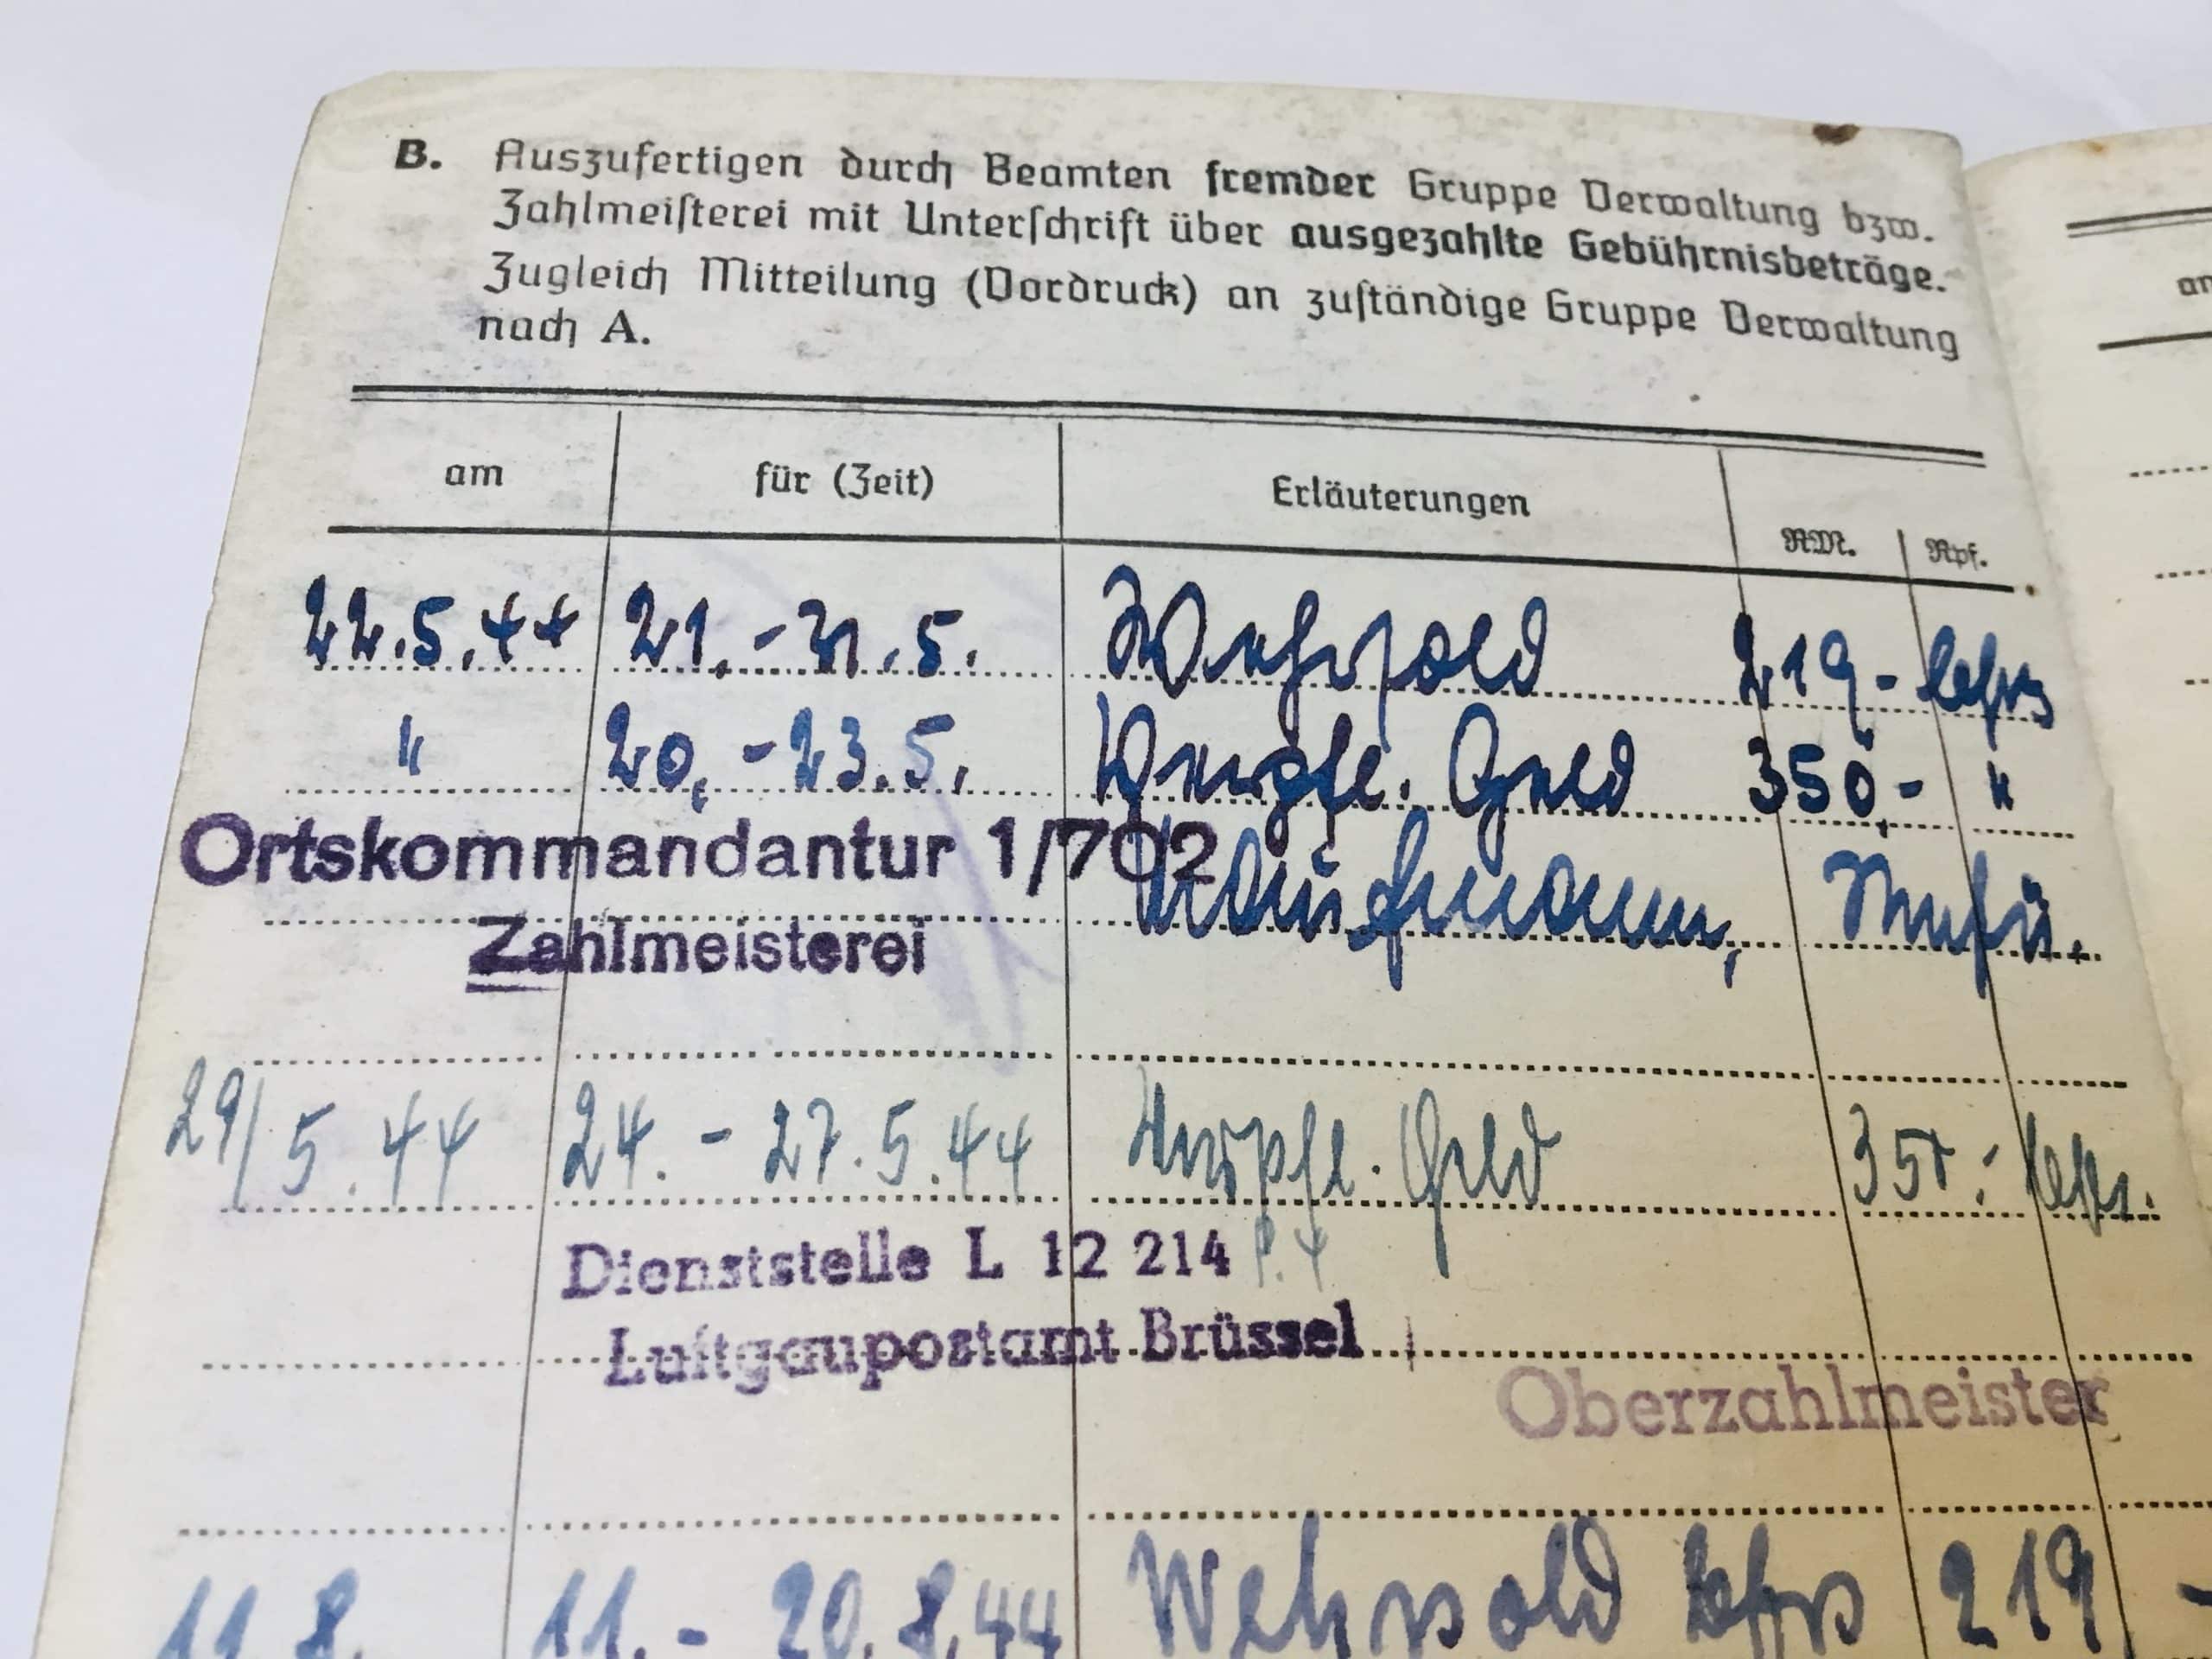 B. Auszufertigen durch Beamten fremder Gruppe Verwaltung bzw.
Zahlmeisterei mit Unterschrift über ausgezahlte Gebührnisbeträge.
Zugleich Mitteilung (Vordruck) an zuständige Gruppe Verwaltung
nach A.
am für (Zeit) Erläuterungen RM. Rpf.
22.5.44 21.-31.5. Wehrsold 219.- bfrs
" 20.-23.5. Verpfl. Geld 350,- "
Ortskommandantur 1/702
Zahlmeisterei
29/5.44 24.-27.5.44 Verpfl. Geld bfrs.
Dienststelle L 12 214
Luftgaupostamt Brüssel
Oberzahlmeister
11.8. 11.-20.8.44 Wehrsold bfrs 219 -